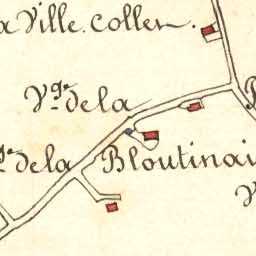 a Ville. Coller.
Vge. de la
ge. de la Bloutinai